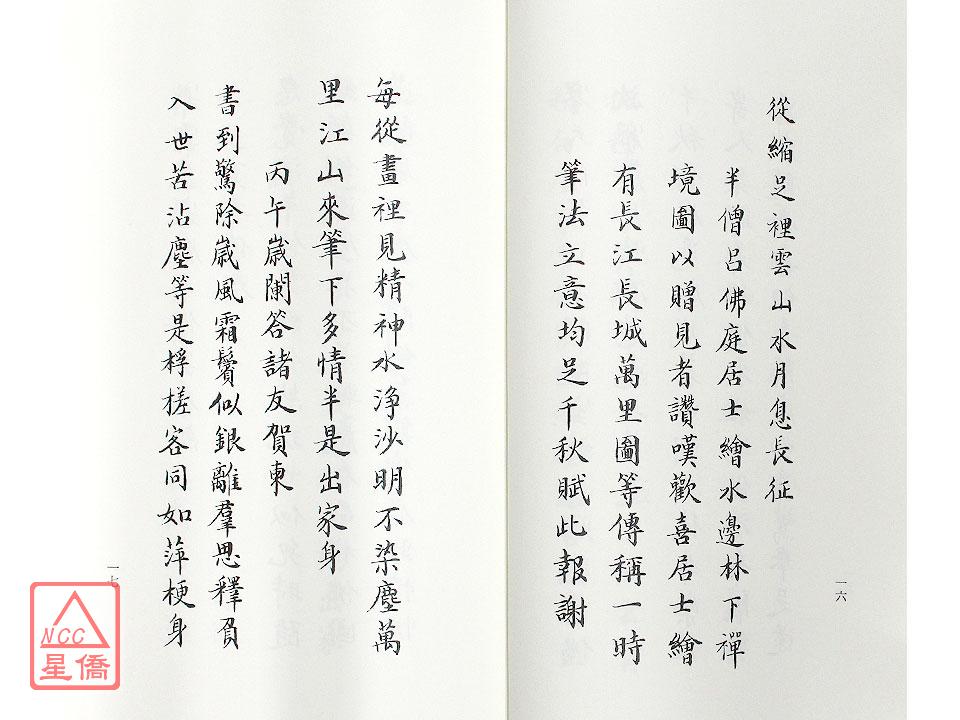 從縮足裡雲山水月息長征
半僧呂佛庭居士繪水邊林下禪
境圖以贈見者讚嘆歡喜居士繪
有長江長城萬里圖等傳稱一時
筆法立意均足千秋賦此報謝
一六
每從畫裡見精神水淨沙明不染塵萬
里江山來筆下多情半是出家身
丙午歲闌答諸友賀柬
書到驚除歲風霜鬢似銀離羣思釋負
入世苦沾塵等是桴槎客同如萍梗身
一七
NCC
星僑